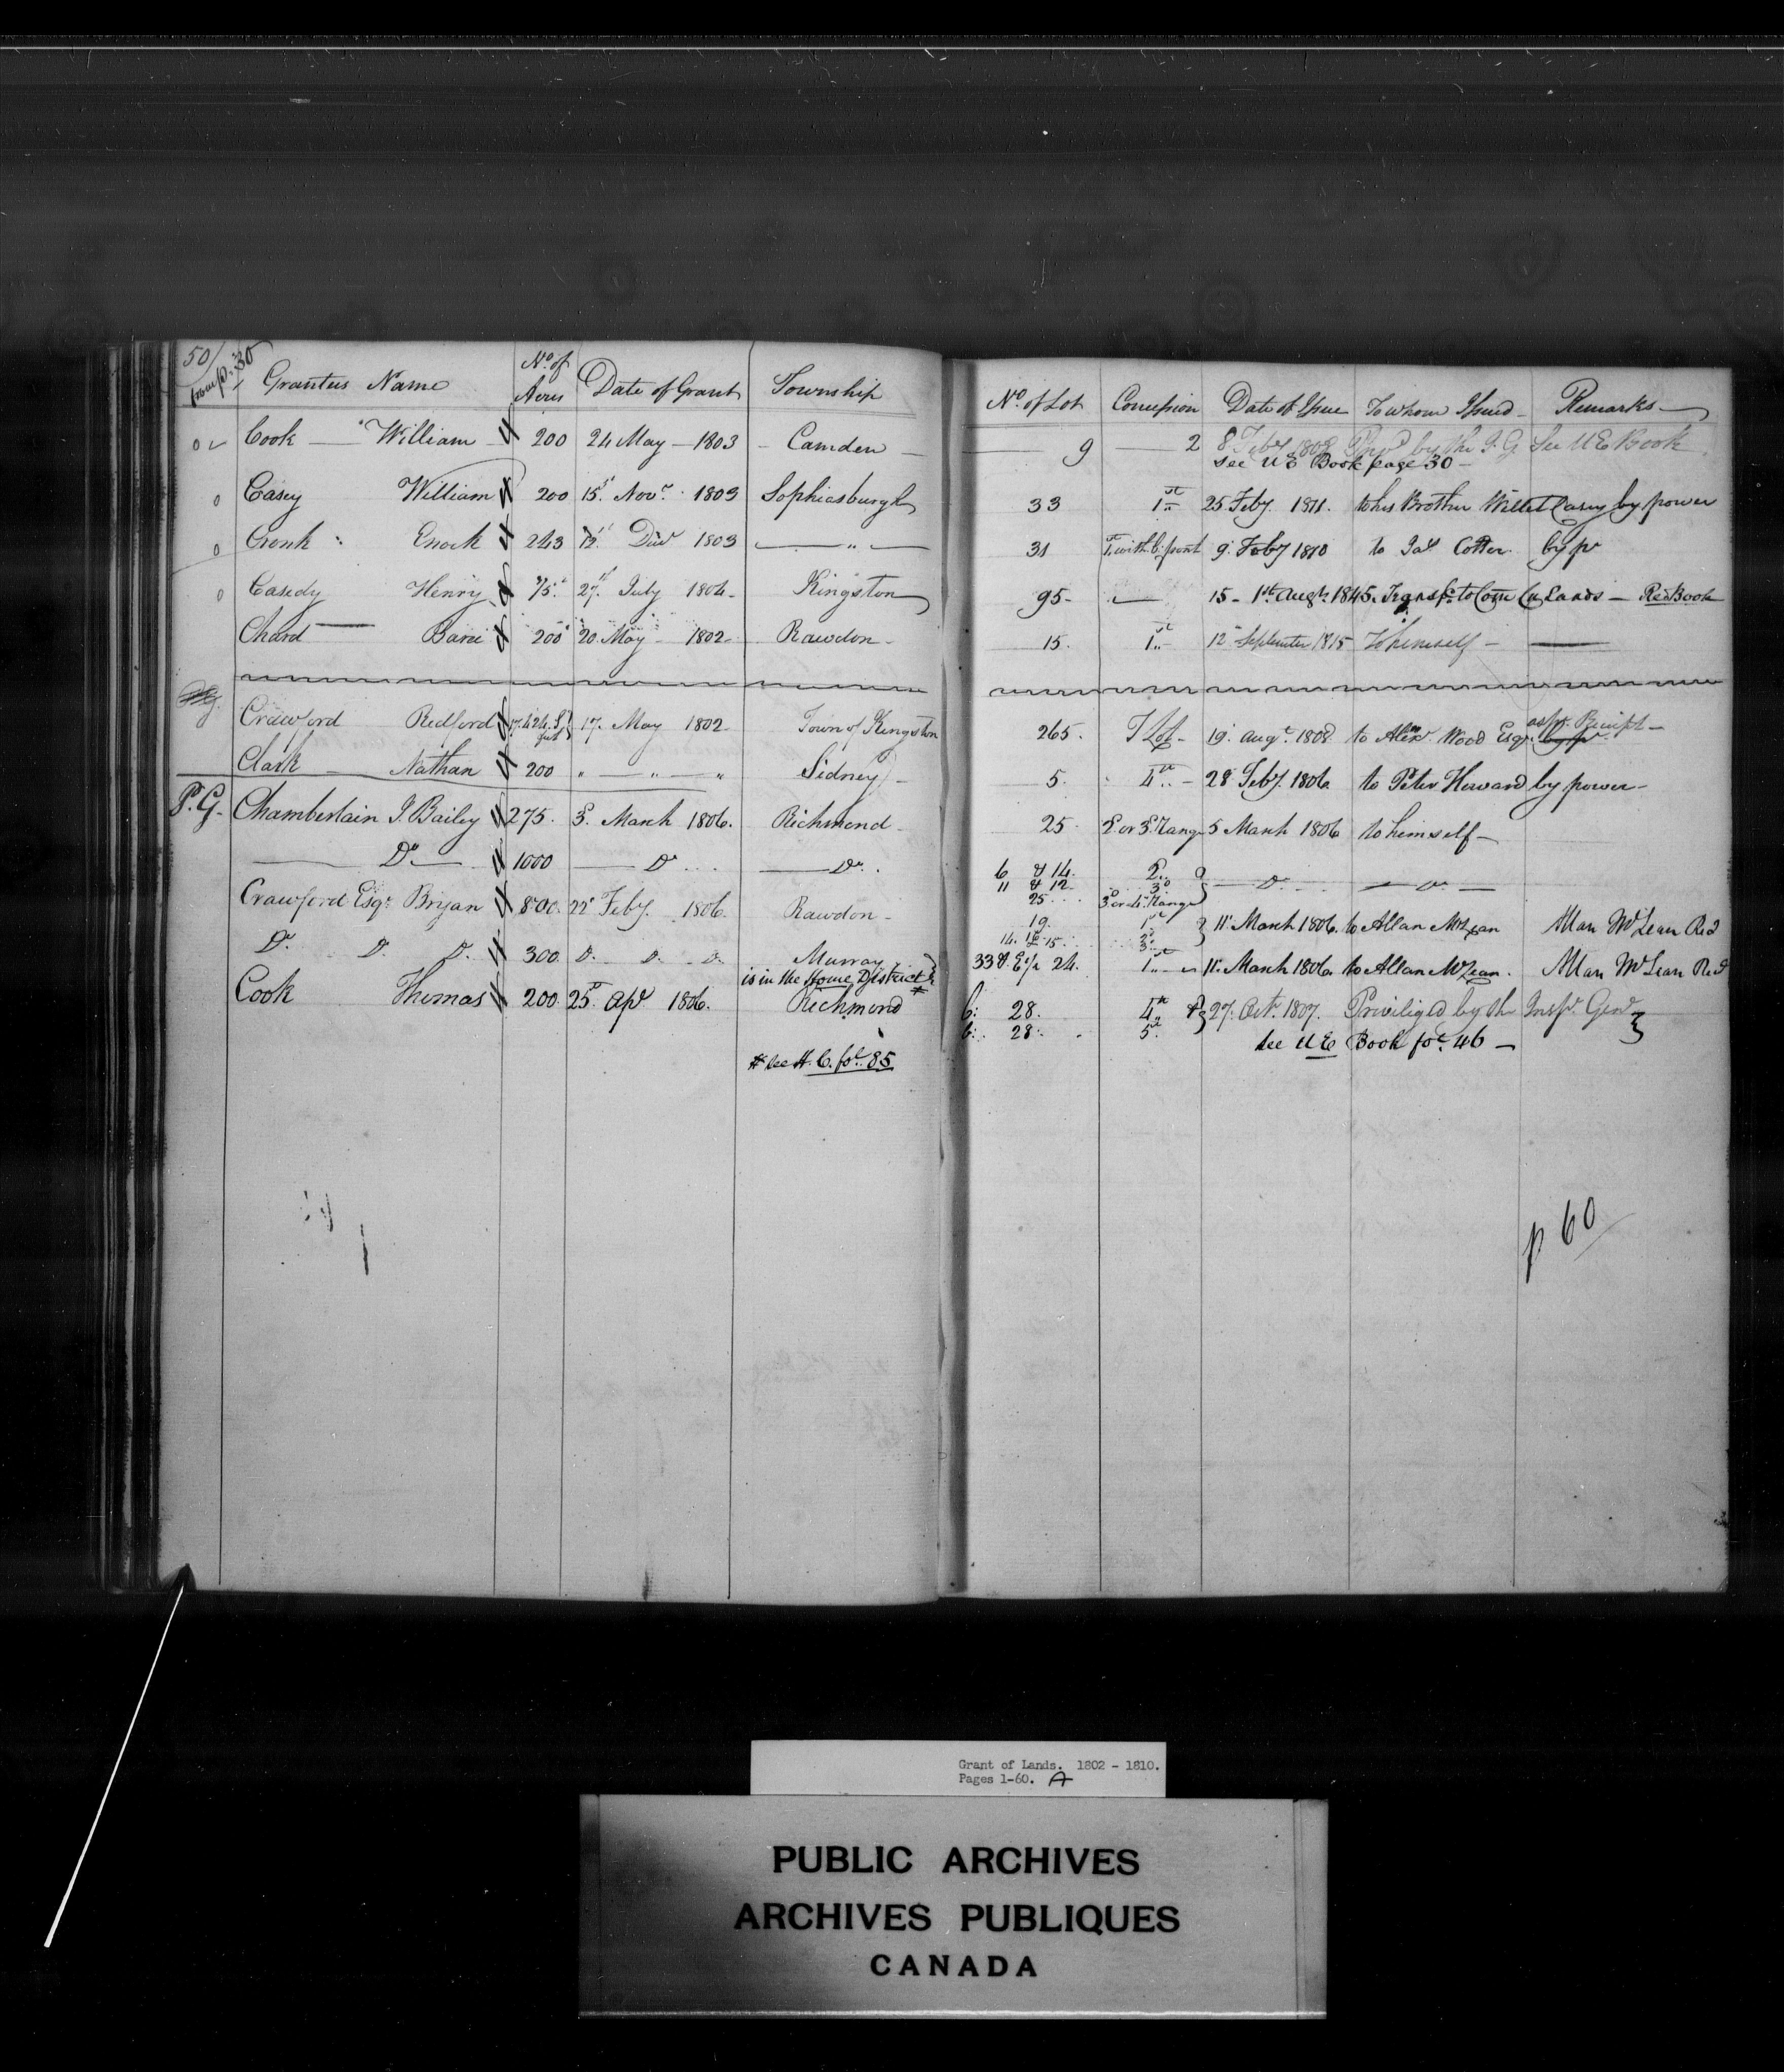 50/ from p. 30
Grantees Name No. of Acres Date of Grant Township No. of Lot Concession Date of Issue To whom Issued Remarks
Cook William 200 24 May 1803 Camden 9 2 8 Feby 1808 by the I.G. See UE Book
See UE Book page 30
Casey William 200 15 Novr. 1803 Sophiasburgh 33 1st 25 Feby 1811. to his Brother Willet Casey by power
Cronk Enock 243 1803 " 31 9. Feby 1810 to Jas Cotter. by pr
Casedy Henry 27. July 1804 Kingston 95 15 - 1st Augt. 1845. Transfd. to Com Cn Lands — Red Book
Chard 200 20 May 1802 Rawdon 15. 1st 12 September 1815 To himself
Crawford Redford 17.424 Sq feet 17. May 1802 Town of Kingston 265. T Lot 19. Augt. 1808 to Alexr. Wood Esqr. as pr. Receipt
Clark Nathan 200 " " " Sidney 5. 4th 28 Feby. 1806. to Peter Howard by power
P.G. Chamberlain J. Bailey 275. 3. March 1806. Richmond 25 2d or 3d Range 5 March 1806 to himself
Do 1000 Do Do.
6 & 14. 2.
11 & 12. 3d Do. Do.
25. 3d or 4. Range
Crawford Esqr. Bryan 800. 22 Feby. 1806. Rawdon 19. 1st 11. March 1806. to Allan McLean Allan McLean Recd
Do. Do. Do. 300. Do. Do. Do. Murray 33 & E 1/2 24. 1st 11. March 1806. to Allan McLean. Allan McLean Recd
is in the Home District #
Cook Thomas 200. 25 Apl 1806. Richmond 28. 4th 27. Octr. 1807. Priviliged by the Inspr. Genl
28. 5th See UE Book fol. 46
# see H. C. fol. 85
p 60
Grant of Lands. 1802 - 1810.
Pages 1-60. A
PUBLIC ARCHIVES
ARCHIVES PUBLIQUES
CANADA